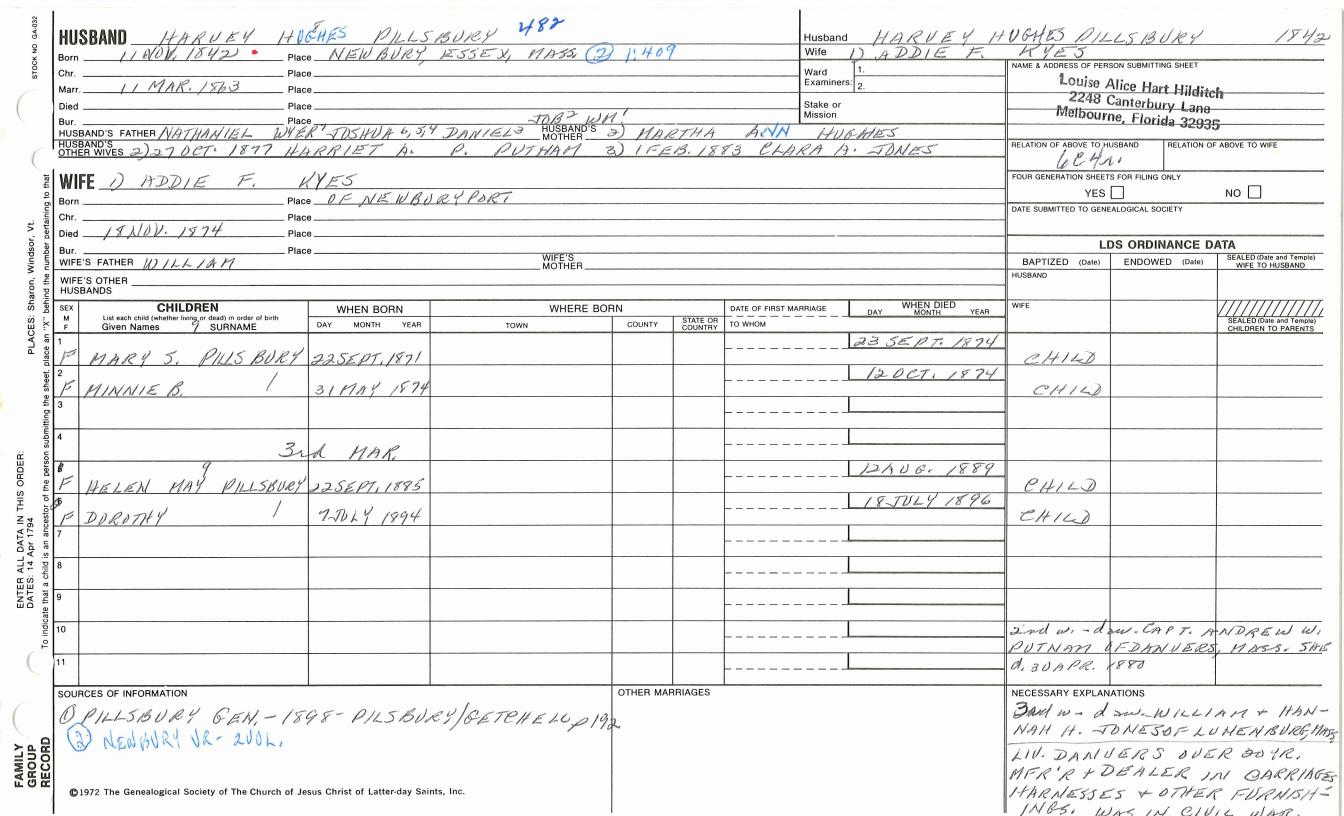 STOCK NO. GA-032
HUSBAND HARVEY HUGHES PILLSBURY 482
Born 11 NOV. 1842 Place NEWBURY, ESSEX, MASS. (2) 1:409
Chr. Place
Marr. 11 MAR. 1863 Place
Died Place
Bur. Place JOB2 WM1
HUSBAND'S FATHER NATHANIEL WYER7 JOSHUA 6,5,4 DANIEL3 HUSBAND'S MOTHER 2) MARTHA ANN HUGHES
HUSBAND'S OTHER WIVES 2) 27 OCT. 1877 HARRIET A. P. PUTNAM 3) 1 FEB. 1883 CLARA A. JONES
Husband HARVEY HUGHES PILLSBURY 1842
Wife 1) ADDIE F. KYES
Ward Examiners: 1.
2.
Stake or Mission
NAME & ADDRESS OF PERSON SUBMITTING SHEET
Louise Alice Hart Hilditch
2248 Canterbury Lane
Melbourne, Florida 32935
RELATION OF ABOVE TO HUSBAND RELATION OF ABOVE TO WIFE
6C4r.
FOUR GENERATION SHEETS FOR FILING ONLY
YES NO
DATE SUBMITTED TO GENEALOGICAL SOCIETY
WIFE 1) ADDIE F. KYES
Born Place OF NEWBURYPORT
Chr. Place
Died 18 NOV. 1874 Place
Bur. Place
WIFE'S FATHER WILLIAM WIFE'S MOTHER
WIFE'S OTHER HUSBANDS
LDS ORDINANCE DATA
BAPTIZED (Date) ENDOWED (Date) SEALED (Date and Temple) WIFE TO HUSBAND
HUSBAND
WIFE
SEALED (Date and Temple) CHILDREN TO PARENTS
SEX M F CHILDREN
List each child (whether living or dead) in order of birth
Given Names 9 SURNAME
WHEN BORN
DAY MONTH YEAR
WHERE BORN
TOWN COUNTY STATE OR COUNTRY
DATE OF FIRST MARRIAGE
TO WHOM
WHEN DIED
DAY MONTH YEAR
1 23 SEPT. 1874
F MARY S. PILLSBURY 22 SEPT, 1871 CHILD
2 12 OCT. 1874
F MINNIE B. 1 31 MAY 1874 CHILD
3
4
3rd MAR.
9 12 AUG. 1889
F HELEN MAY PILLSBURY 22 SEPT, 1885 CHILD
18 JULY 1896
F DOROTHY 1 7 JULY 1894 CHILD
7
8
9
10
11
2nd w. - daw. CAPT. ANDREW W.
PUTNAM OF DANVERS, MASS. SHE
d. 30 APR. 1880
SOURCES OF INFORMATION
(1) PILLSBURY GEN. - 1898 - PILSBURY/GETCHELL p192
(2) NEWBURY VR - 2 VOL.
OTHER MARRIAGES
NECESSARY EXPLANATIONS
3rd w - daw. WILLIAM + HAN-
NAH H. JONES OF LUNENBURG, MASS
LIV. DANVERS OVER 20 YR.
MFR'R + DEALER IN CARRIAGES
HARNESSES + OTHER FURNISH-
INGS. WAS IN CIVIL WAR.
©1972 The Genealogical Society of The Church of Jesus Christ of Latter-day Saints, Inc.
FAMILY
GROUP
RECORD
ENTER ALL DATA IN THIS ORDER:
DATES: 14 Apr 1794
PLACES: Sharon, Windsor, Vt.
To indicate that a child is an ancestor of the person submitting the sheet, place an "X" behind the number pertaining to that